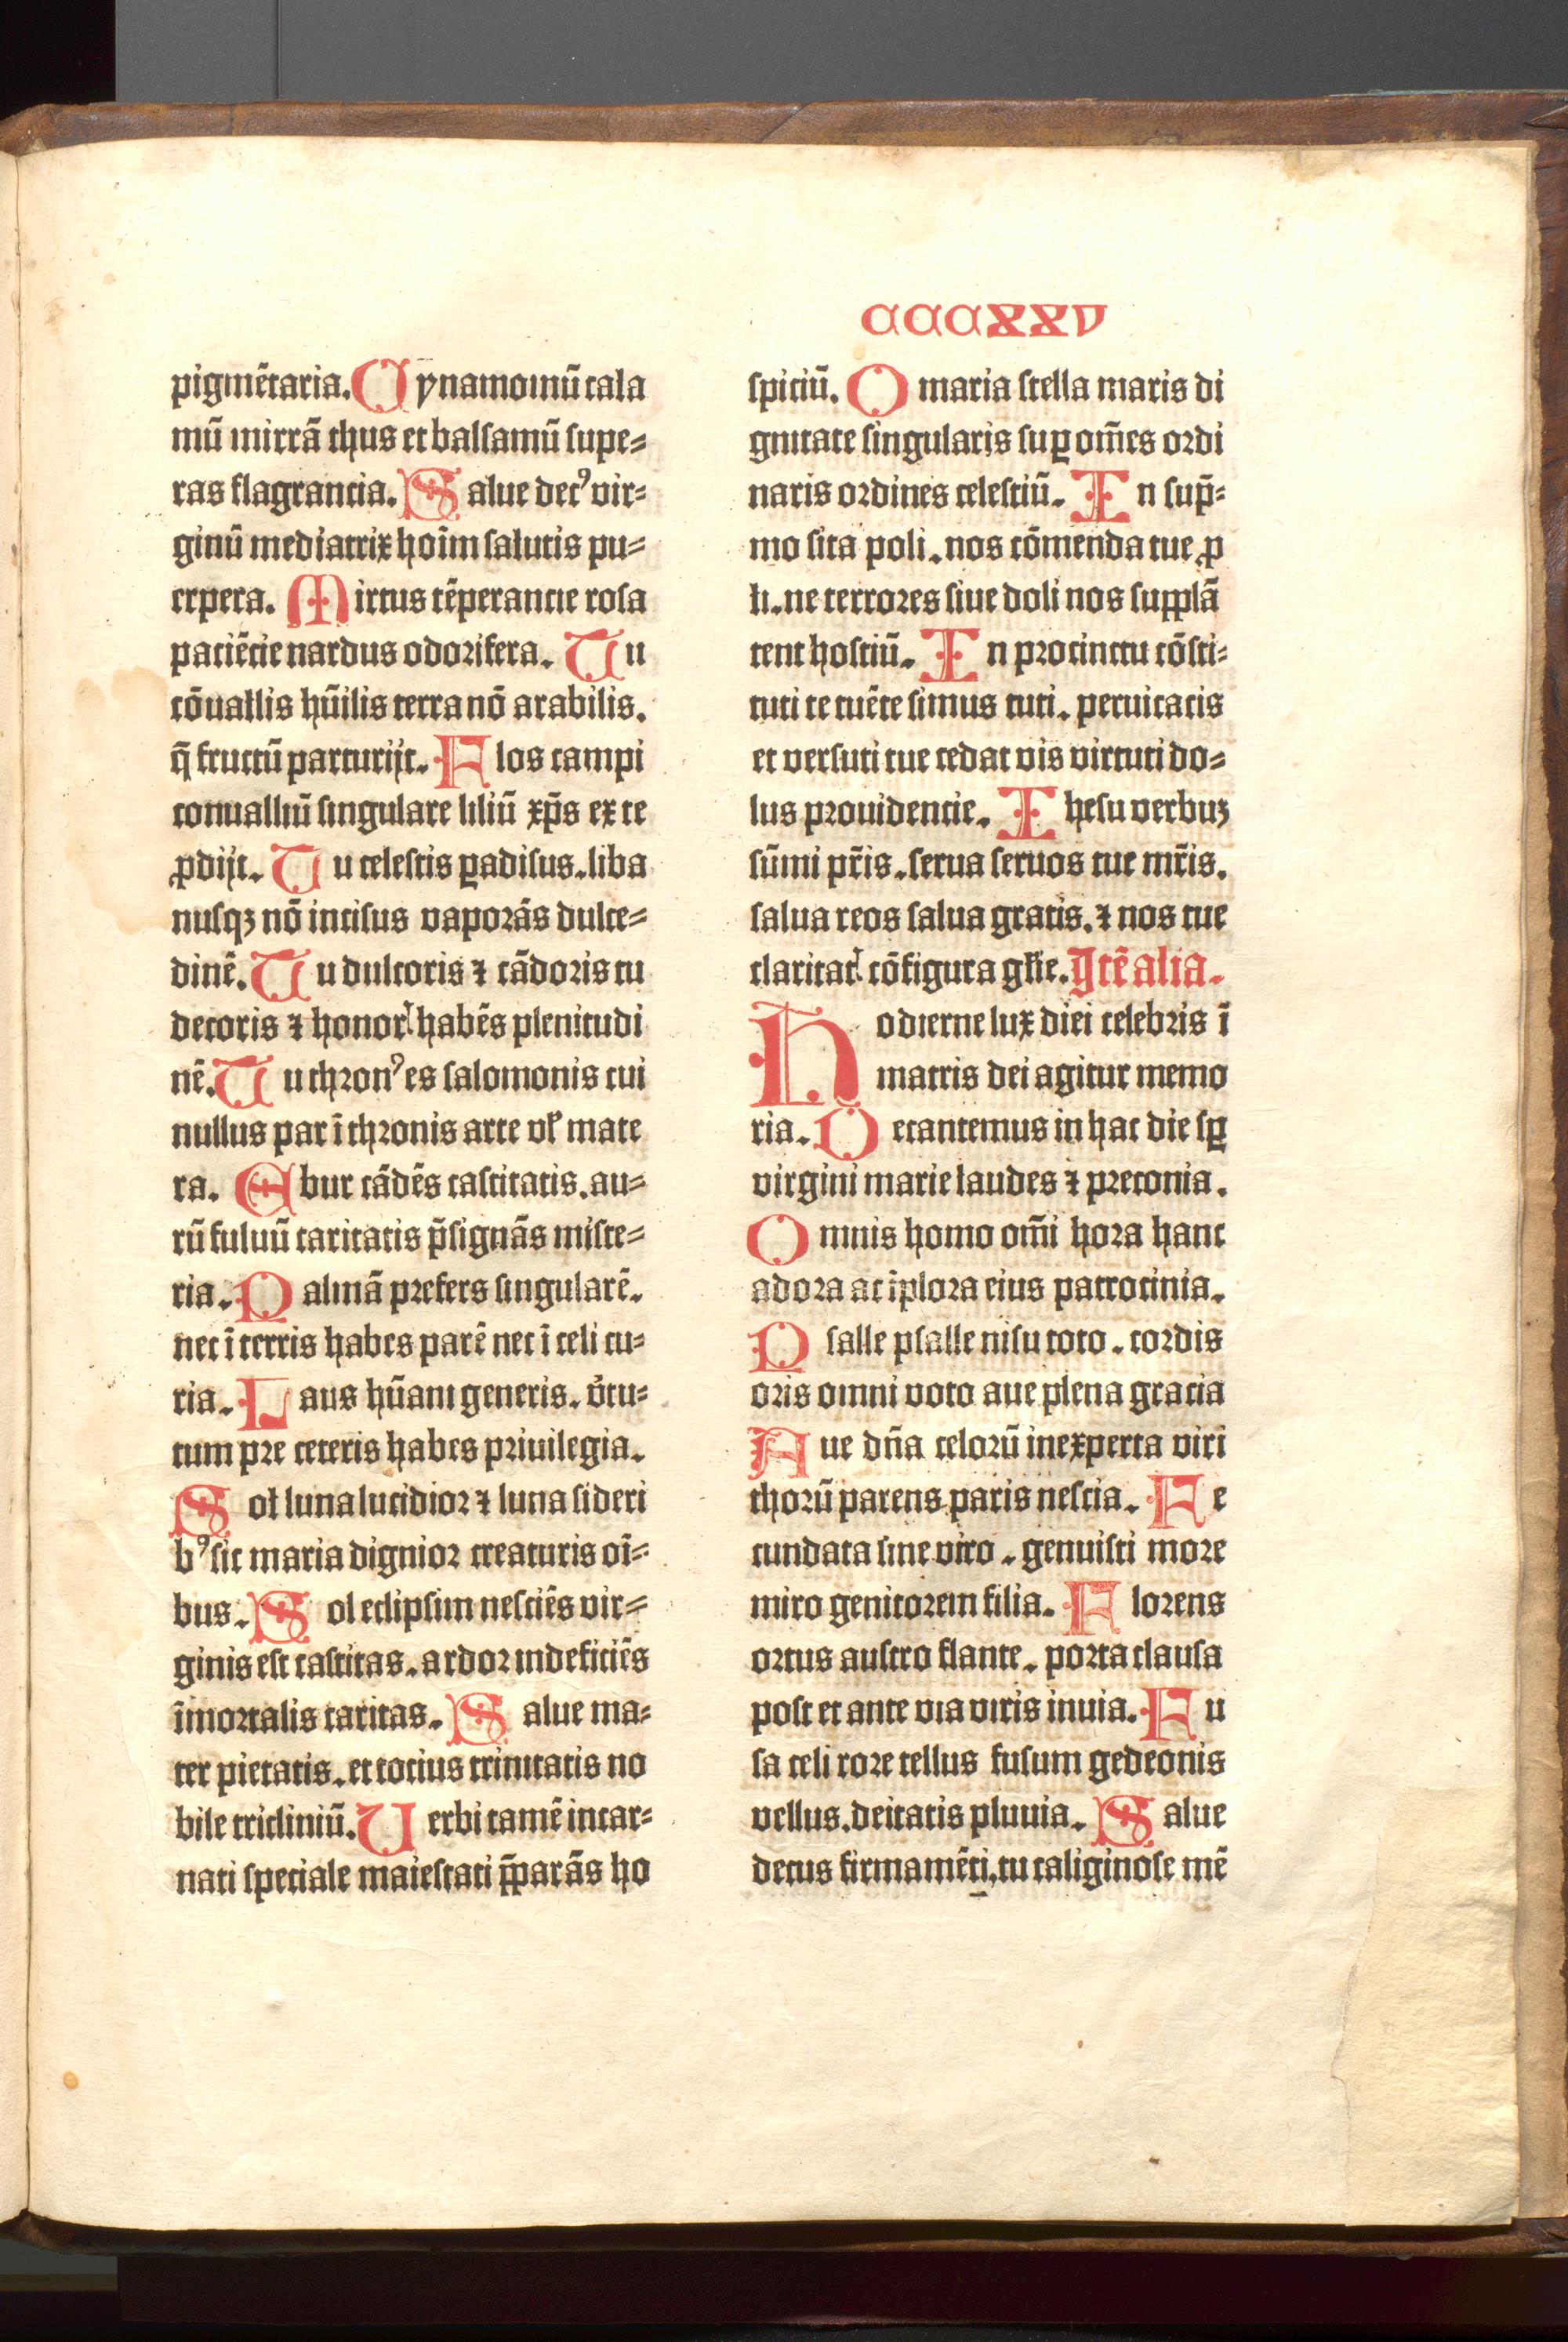 CCCXXV
pigmētaria. Cynamomū cala
mū mirrā thus et balsamū supe=
ras flagrancia. Salue decꝰ vir=
ginū mediatrix hoīm salutis pu=
erpera. Mirtus tēperantie rosa
paciēcie nardus odorifera. Tu
cōuallis hūilis terra nō arabilis.
q̄ fructū parturijt. Flos campi
conualliū singulare liliū xp̄s ex te
ꝓdijt. Tu celestis ꝑadisus. liba
nusqȝ nō incisus vaporās dulce=
dinē. Tu dulcoris ⁊ cādoris tu
decoris ⁊ honorꝭ habēs plenitudi
nē. Tu thronꝰ es salomonis cui
nullus par ī thronis arte vł mate
ra. Ebur cādēs castitatis. au=
rū fuluū caritatis p̄signās miste=
ria. Palmā prefers singularē.
nec ī terris habes parē nec ī celi cu=
ria. Laus hūani generis. v̄tu=
tum pre ceteris habes priuilegia.
Sol luna lucidior ⁊ luna sideri
bꝰ sic maria dignior creaturis oī=
bus. Sol eclipsim nesciēs vir=
ginis est castitas. ardor indeficiēs
īmortalis caritas. Salue ma=
ter pietatis. et tocius trinitatis no
bile tricliniū. Verbi tamē incar=
nati speciale maiestati p̄parās ho
spiciū. O maria stella maris di
gnitate singularis suꝑ om̄es ordi
naris ordines celestiū. In sup̄=
mo sita poli. nos cōmenda tue ꝓ
li. ne terrores siue doli nos supplā
tent hostiū. In procinctu cōsti=
tuti te tuēte simus tuti. peruicacis
et versuti tue cedat vis virtuti do=
lus prouidencie. Ihesu verbuȝ
sūmi pr̄is. serua seruos tue mr̄is.
salua reos salua gratis. ⁊ nos tue
claritatꝭ cōfigura głie. Itē alia.
Hodierne lux diei celebris ī
matris dei agitur memo
ria. Decantemus in hac die sꝑ
virgini marie laudes ⁊ preconia.
Omnis homo om̄i hora hanc
adora ac īplora eius patrocinia.
Psalle psalle nisu toto. cordis
oris omni voto aue plena gracia
Aue dn̄a celorū inexperta viri
thorū parens paris nescia. Fe
cundata sine viro. genuisti more
miro genitorem filia. Florens
ortus austro flante. porta clausa
post et ante via viris inuia. Fu
sa celi rore tellus fusum gedeonis
vellus. deitatis pluuia. Salue
decus firmamēti. tu caliginose mē